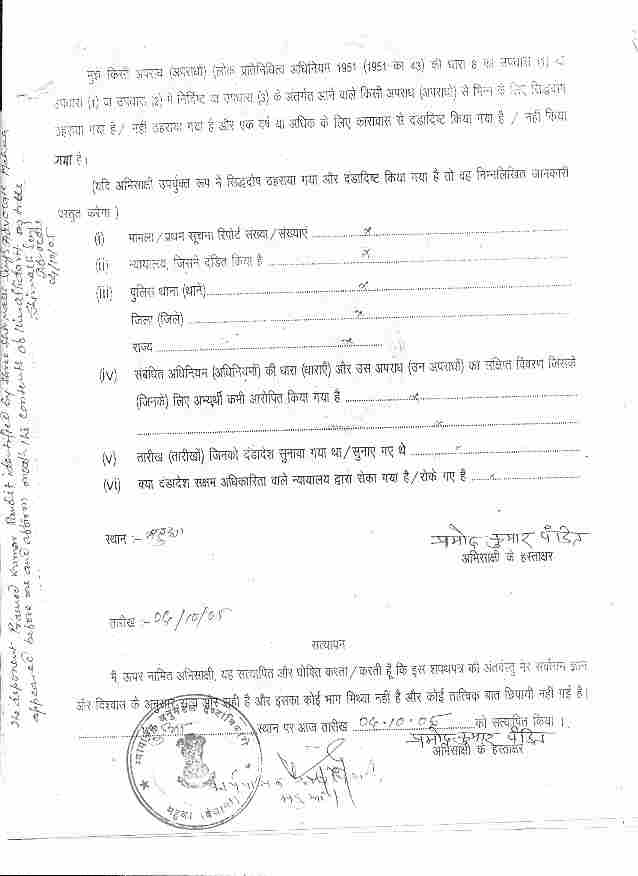 मुझे किसी अपराध (अपराधों) (लोक प्रतिनिधित्व अधिनियम 1951 (1951 का 43) की धारा 8 की उपधारा (1) या
उपधारा (1) या उपधारा (2) में निर्दिष्ट या उपधारा (3) के अंतर्गत आने वाले किसी अपराध (अपराधों) से भिन्न के लिए सिद्धदोष
ठहराया गया है / नहीं ठहराया गया है और एक वर्ष या अधिक के लिए कारावास से दंडादिष्ट किया गया है / नहीं किया
गया है।
(यदि अभिसाक्षी उपर्युक्त रूप ने सिद्धदोष ठहराया गया और दंडादिष्ट किया गया है तो वह निम्नलिखित जानकारी
प्रस्तुत करेगा )
(i) मामला / प्रथम सूचना रिपोर्ट संख्या / संख्याएं x
(ii) न्यायालय, जिसने दंडित किया है x
(iii) पुलिस थाना (थाने) x
जिला (जिले) x
राज्य x
(iv) संबंधित अधिनियम (अधिनियमों) की धारा (धाराएँ) और उस अपराध (उन अपराधों) का संक्षिप्त विवरण जिसके
(जिनके) लिए अभ्यर्थी कभी आरोपित किया गया है x
x
(v) तारीख (तारीखों) जिनको दंडादेश सुनाया गया था / सुनाए गए थे
(vi) क्या दंडादेश सक्षम अधिकारिता वाले न्यायालय द्वारा रोका गया है / रोके गए है
स्थान :- महुआ
प्रमोद कुमार पंडित
अभिसाक्षी के हस्ताक्षर
तारीख :- 04/10/05
सत्यापन
मैं ऊपर नामित अभिसाक्षी, यह सत्यापित और घोषित करता / करती हूँ कि इस शपथपत्र की अंतर्वस्तु मेरे सर्वोत्तम ज्ञान
और विश्वास के अनुसार सत्य और सही है और इसका कोई भाग मिथ्या नहीं है और कोई तात्विक बात छिपायी नहीं गई है।
स्थान पर आज तारीख 04.10.05 को सत्यापित किया ।
प्रमोद कुमार पंडित
अभिसाक्षी के हस्ताक्षर
महुआ (वैशाली)
The deponent Pramod Kumar Pandit identified by Advocate Mahua
appeared before me and affirm oath the contents of
Advocate
04/10/05